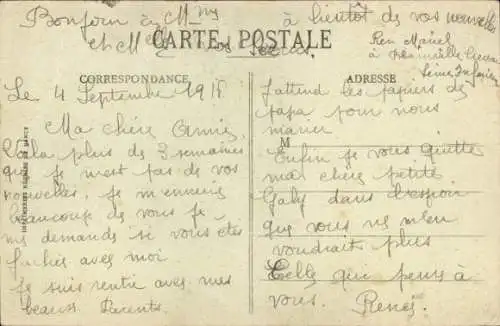 Bonjour à Mme
et Melle vos sœurs
à bientôt de vos nouvelles
Ren
à
Seine Inférieure
CARTE POSTALE
CORRESPONDANCE
ADRESSE
Le 4 Septembre 191
Ma chère Amie
Voila plus de 3 semaines
que je n'est pas de vos
nouvelles, je m'ennuie
beaucoup de vous je
me demande si vous êtes
fachée avec moi
je suis rentré avec mes
beaux Parents.
J'attend les papiers de
papa pour nous
marier
M
Enfin je vous quitte
ma chère petite
Gaby dans l'espoir
que vous ne m'en
voudrait plus
Celle qui pense à
vous. Renée